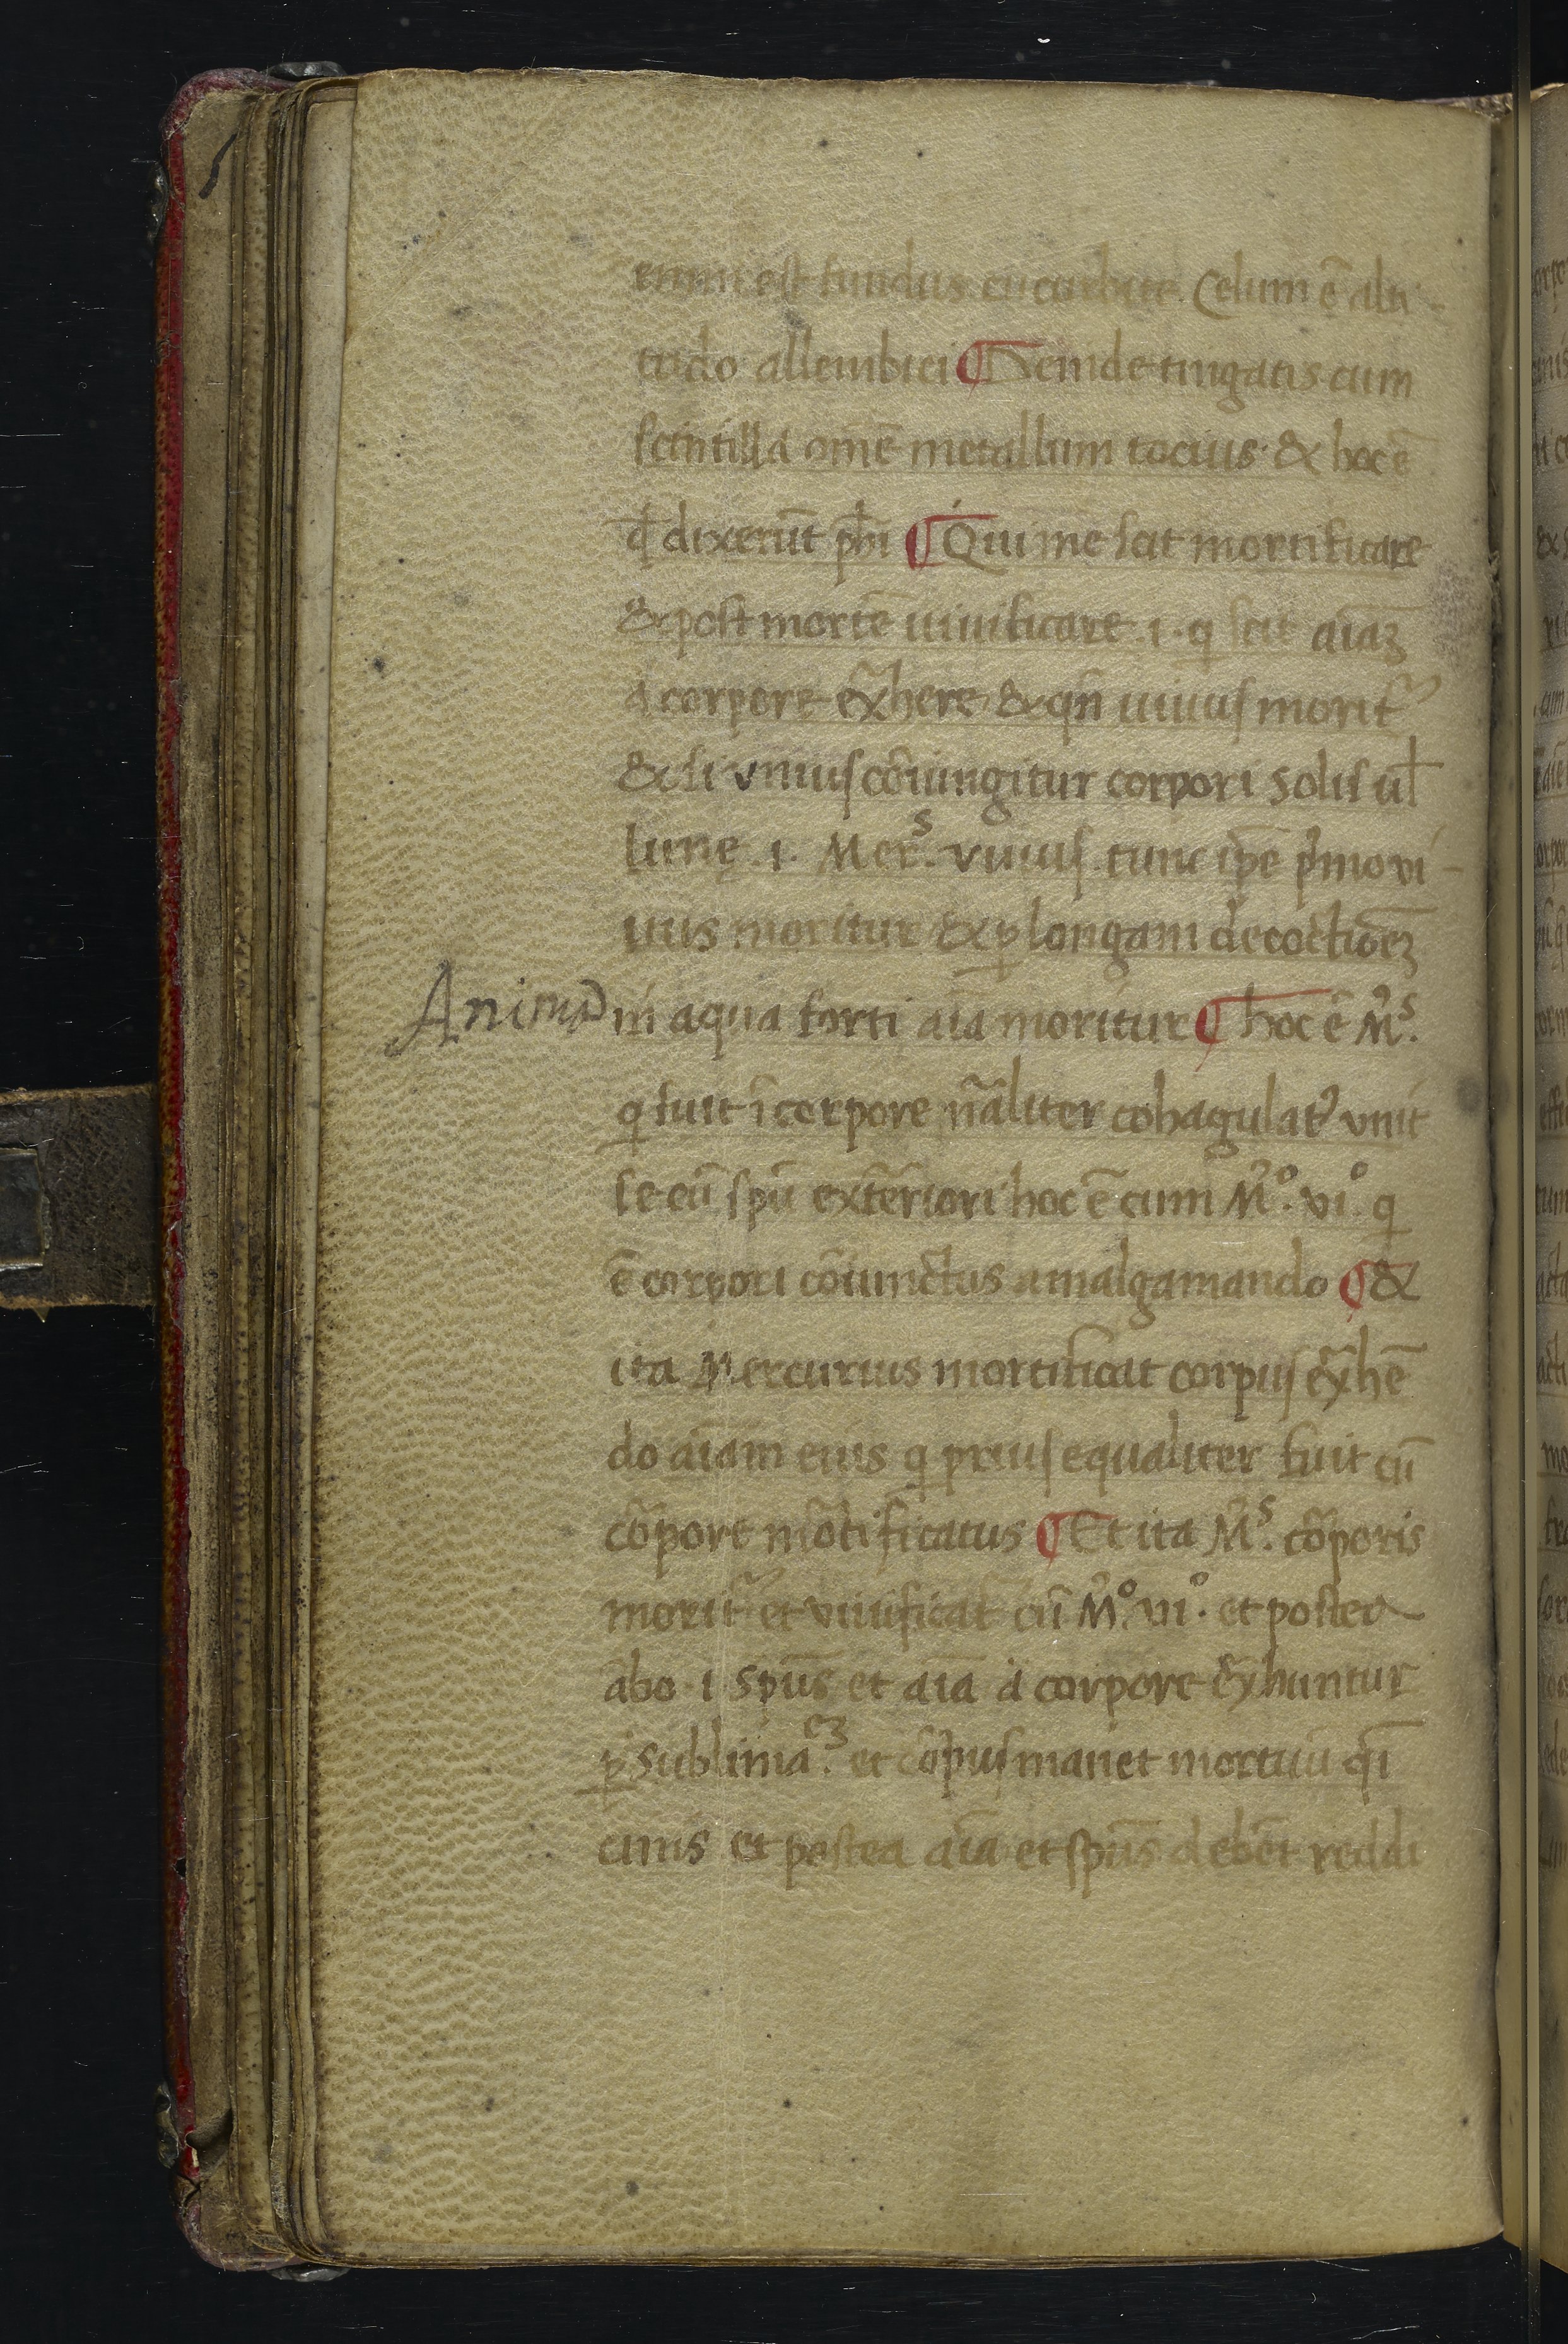 enim est fundus cucurbite. Celum ē alti-
tudo allembici ¶ Deinde tingatis cum
scintilla om̄e metallum tocius · & hoc ē
qđ dixerūt ph̄i ¶ Qui me scit mortificare
& post mortē uiuificare .i. q scit aiaꝫ
a corpore ex̄here & qn̄ uiuus morit᷑
& si vnius cōiungitur corpori solis ul̄
lune .i. Merˢ. viuus tunc ip̄e p̄mo vi-
uus moritur & ꝑ longam decoctiōeꝫ
Anima
in aqua forti aīa moritur ¶ hoc ē M̄ˢ.
q fuit ī corpore nāliter cohagulat᷑ vnit
se cū sp̄u exteriori hoc ē cum M̄º. viº. q
ē corpori cōiunctus amalgamando ¶ &
ita Mercurius mortificat corpus ex̄hē
do aīam eius q prius equaliter fuit cū
cōpore mōtificatus ¶ Et ita M̄ˢ. cōporis
morit᷑ et viuificat᷑ cū M̄º. viº. et postea
abo .i. sp̄us et aīa a corpore ex̄huntur
ꝑ sublimaᵒꝫ. et cōpus manet mortuū q̄i
cinis et postea aīa et sp̄us debēt reddi